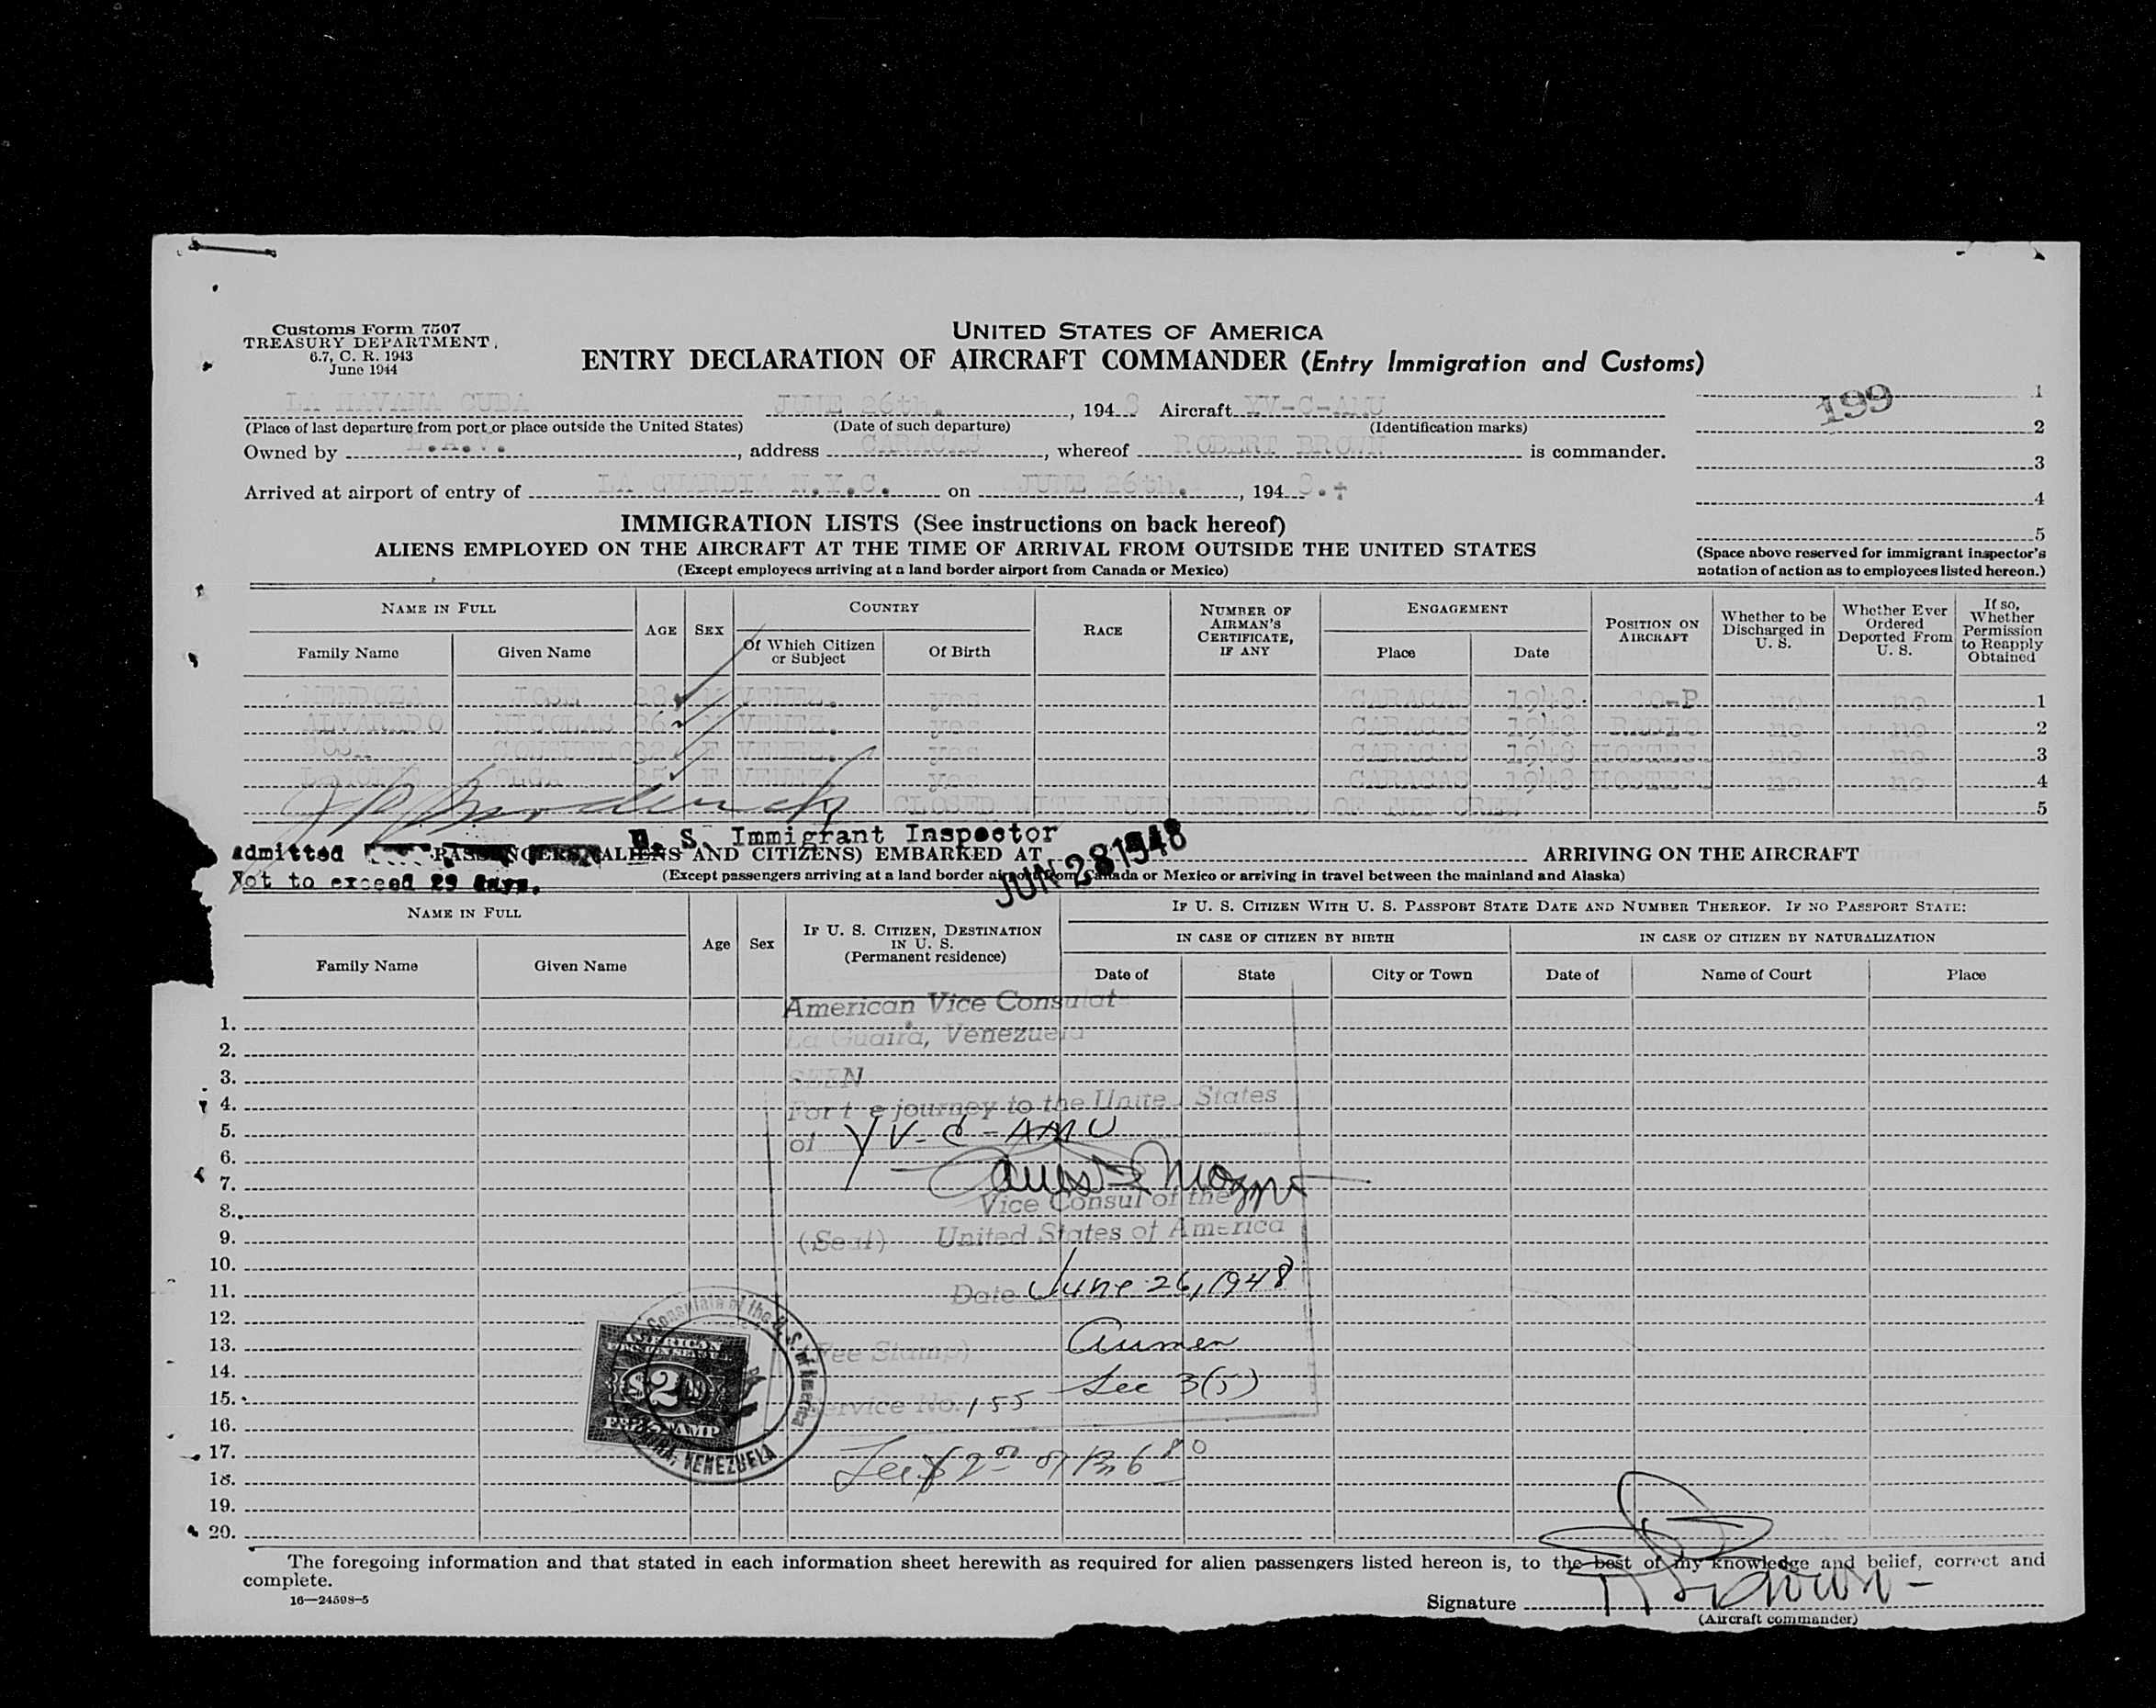 Customs Form 7507
TREASURY DEPARTMENT
6.7, C. R. 1943
June 1944
UNITED STATES OF AMERICA
ENTRY DECLARATION OF AIRCRAFT COMMANDER (Entry Immigration and Customs)
199
LA HAVANA CUBA JUNE 26th. , 194 8 Aircraft YV-C-AMU
(Place of last departure from port or place outside the United States) (Date of such departure) (Identification marks)
Owned by L.A.V. , address CARACAS , whereof ROBERT BROWN is commander.
Arrived at airport of entry of LA GUARDIA N.Y.C. on JUNE 26th. , 194 8.
1
2
3
4
5
(Space above reserved for immigrant inspector's notation of action as to employees listed hereon.)
IMMIGRATION LISTS (See instructions on back hereof)
ALIENS EMPLOYED ON THE AIRCRAFT AT THE TIME OF ARRIVAL FROM OUTSIDE THE UNITED STATES
(Except employees arriving at a land border airport from Canada or Mexico)
NAME IN FULL AGE SEX COUNTRY RACE NUMBER OF AIRMAN'S CERTIFICATE, IF ANY ENGAGEMENT POSITION ON AIRCRAFT Whether to be Discharged in U. S. Whether Ever Ordered Deported From U. S. If so, Whether Permission to Reapply Obtained
Family Name Given Name Of Which Citizen or Subject Of Birth Place Date
MENDOZA JOSE 28 M VENEZ. yes CARACAS 1948 CO-P no no 1
ALVARADO NICOLAS 26 M VENEZ. yes CARACAS 1948 RADIO no no 2
SOSA CONSUELO 32 F VENEZ. yes CARACAS 1948 HOSTES. no no 3
OLGA 25 F VENEZ. yes CARACAS 1948 HOSTES. no no 4
CLOSED WITH FOUR MEMBERS OF THE CREW 5
U. S. Immigrant Inspector
Admitted
Not to exceed 29 days.
JUN 28 1948
PASSENGERS (ALIENS AND CITIZENS) EMBARKED AT ARRIVING ON THE AIRCRAFT
(Except passengers arriving at a land border airport from Canada or Mexico or arriving in travel between the mainland and Alaska)
NAME IN FULL Age Sex IF U. S. CITIZEN, DESTINATION IN U. S. (Permanent residence) IF U. S. CITIZEN WITH U. S. PASSPORT STATE DATE AND NUMBER THEREOF. IF NO PASSPORT STATE:
IN CASE OF CITIZEN BY BIRTH IN CASE OF CITIZEN BY NATURALIZATION
Family Name Given Name Date of State City or Town Date of Name of Court Place
1.
2.
3.
4.
5.
6.
7.
8.
9.
10.
11.
12.
13.
14.
15.
16.
17.
18.
19.
20.
American Vice Consulat
La Guaira, Venezuela
SEEN
For t e journey to the United States
of YV-C-AMU
Vice Consul of the
(Seal) United States of America
Date June 26, 1948
(Fee Stamp)
Sec 3(5)
Service No. 155
Consulate of the U. S. of America
VENEZUELA
AMERICAN
$2
FEE STAMP
The foregoing information and that stated in each information sheet herewith as required for alien passengers listed hereon is, to the best of my knowledge and belief, correct and
complete.
16—24598-5
Signature
(Aircraft commander)